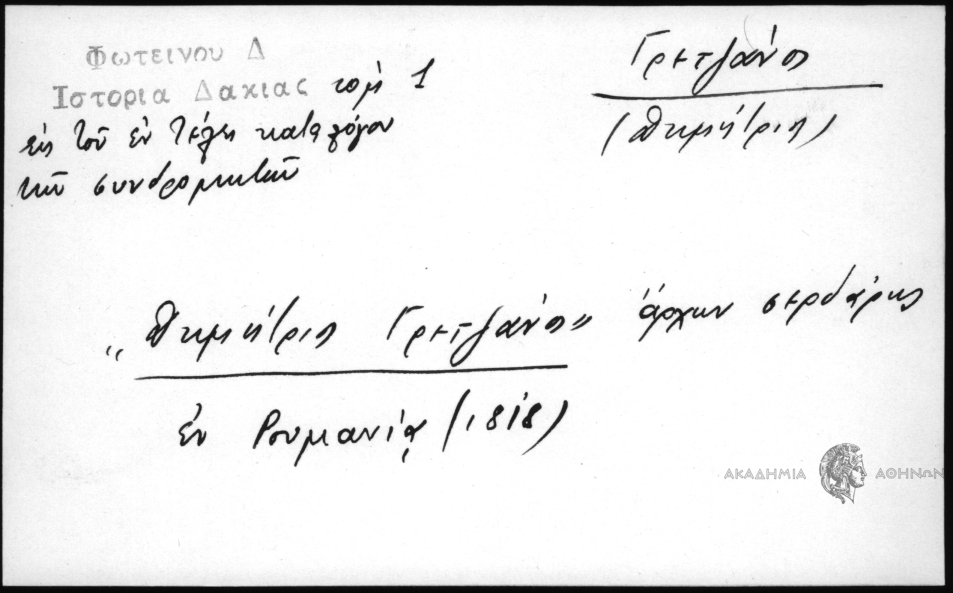 Φωτεινου Δ
Ιστορια Δακιας τομ 1
εις τον εν τέλει κατάλογον
των συνδρομητών
Γρετζάνος
(Δημήτριος)
"Δημήτριος Γρετζάνος" άρχων σερδάρης
εν Ρουμανία (1818)
ΑΚΑΔΗΜΙΑ ΑΘΗΝΩΝ